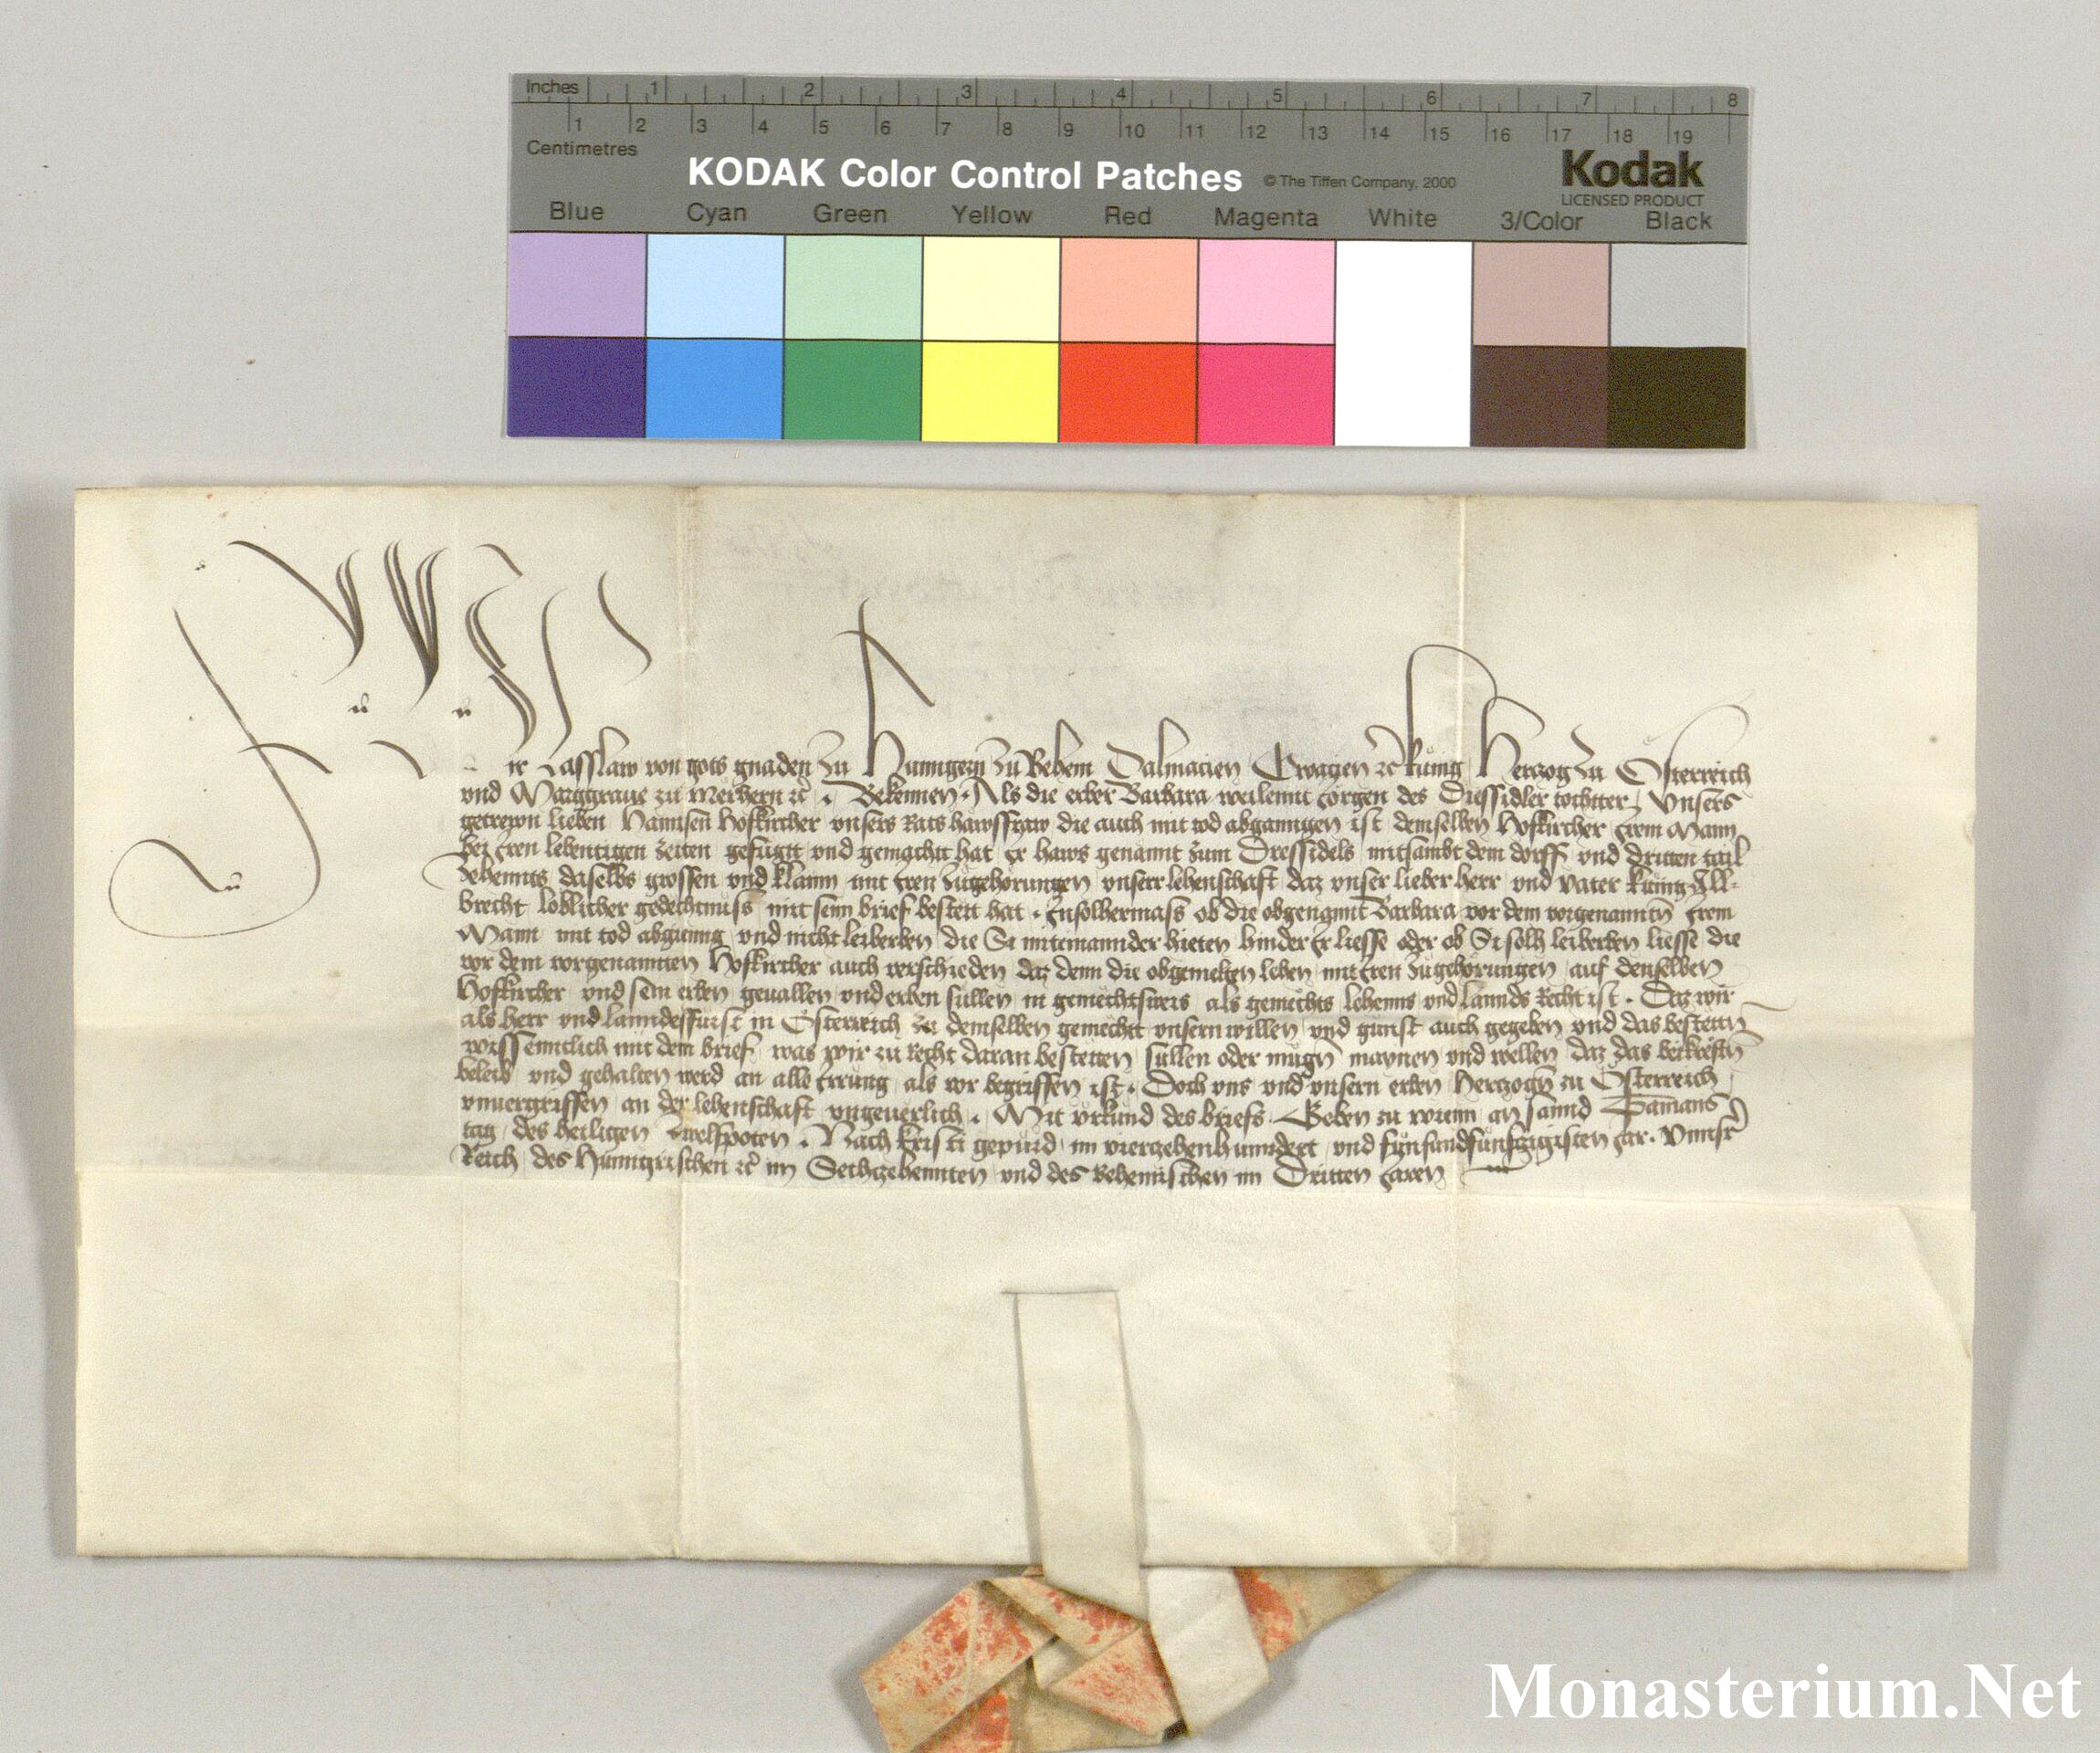 Inches 1 2 3 4 5 6 7 8
1 2 3 4 5 6 7 8 9 10 11 12 13 14 15 16 17 18 19
Centimetres
KODAK Color Control Patches © The Tiffen Company, 2000 Kodak
LICENSED PRODUCT
Blue Cyan Green Yellow Red Magenta White 3/Color Black
Wir Lasslaw von gots gnaden zu Hunngern zu Behem Dalmacien Croacien etc kunig Herczog zu Österreich
und Marggraue zu Merhern etc . Bekennen . Als die erber Barbara weilennt Jorgen des Dressidler tochtter, Unsers
getrewn lieben Hannsen Hofkircher unsers Rats hawsfraw die auch mit tod abganngen ist demselben Hofkircher irem Mann
bei iren lebentigen zeiten gefugtt und gemacht hat Ir haws genannt zum Dressidels mitsambt dem dorff und dritten tail
zehennts daselbs grossen und klainn mit iren zugehorungen unserr lehenschaft daz unser lieber herr und vater kunig All-
brecht loblicher gedechtnuss mit seim brief bestett hat . Insolhermass ob die obgenannt Barbara vor dem vorgenanntn irem
Mann mit tod abgienng und nicht leiberben die Si miteinannder hieten hinder Ir liesse oder ob Si solh leiberben liesse die
vor dem vorgenannten Hofkircher auch verschieden daz denn die obgemelten lehen mit iren zugehörungen auf denselben
Hofkircher und sein erben geuallen und erben sullen in gemechtsweis als gemechts lehenns und lannds Recht ist . Daz wir
als herr und lanndesfürst in Österreich zu demselben gemechtt unsern willen und gunst auch gegeben und das bestettn
wissenntlich mit dem brief was wir zu Recht daran bestetten sullen oder mügn maynen und wellen daz das bei kreftn
beleib und gehalten werd an alle Irrung als vor begriffen ist . Doch uns und unsern erben Herczogn zu Österreich
unuergriffen an der lehenschaft ungeuerlich . Mit urkund des briefs Geben zu wienn an sannd Tamans
tag des heiligen zwelfpoten . Nach kristi gepurd im vierzehenhunndert und fünfundfunfzigisten Jar . Unnsr
Reich des Hunngrischen etc im Sechzehennten und des Behemischen im Dritten Jaren
Monasterium.Net